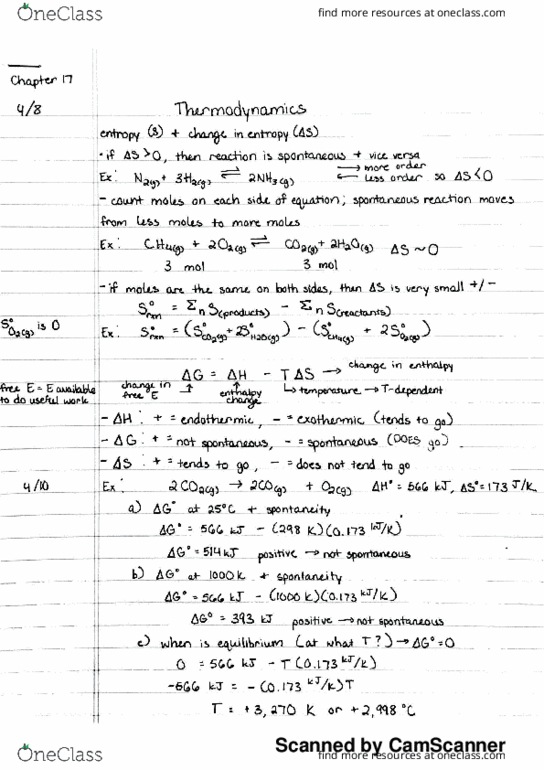 OneClass
find more resources at oneclass.com
Chapter 17
4/8
Thermodynamics
entropy (S) + change in entropy (ΔS)
• if ΔS > 0, then reaction is spontaneous + vice versa
Ex: N₂(g) + 3H₂(g) ⇌ 2NH₃(g) → more order ← less order so ΔS < 0
- count moles on each side of equation; spontaneous reaction moves
from less moles to more moles
Ex: CH₄(g) + 2O₂(g) ⇌ CO₂(g) + 2H₂O(g) ΔS ~ 0
3 mol 3 mol
- if moles are the same on both sides, then ΔS is very small +/-
S°rxn = Σn S(products) - Σn S(reactants)
S°O₂(g) is 0
Ex: S°rxn = (S°CO₂(g) + 2S°H₂O(g)) - (S°CH₄(g) + 2S°O₂(g))
ΔG = ΔH - TΔS → change in enthalpy
free E = E available
to do useful work
change in free E
enthalpy change
↳ temperature → T-dependent
- ΔH: + = endothermic, - = exothermic (tends to go)
- ΔG: + = not spontaneous, - = spontaneous (DOES go)
- ΔS: + = tends to go, - = does not tend to go
4/10
Ex: 2CO₂(g) → 2CO(g) + O₂(g) ΔH° = 566 kJ, ΔS° = 173 J/K
a) ΔG° at 25°C + spontaneity
ΔG° = 566 kJ - (298 K)(0.173 kJ/K)
ΔG° = 514 kJ positive → not spontaneous
b) ΔG° at 1000 K + spontaneity
ΔG° = 566 kJ - (1000 K)(0.173 kJ/K)
ΔG° = 393 kJ positive → not spontaneous
c) when is equilibrium (at what T?) → ΔG° = 0
0 = 566 kJ - T(0.173 kJ/K)
-566 kJ = -(0.173 kJ/K)T
T = +3,270 K or +2,998 °C
Scanned by CamScanner
OneClass
find more resources at oneclass.com